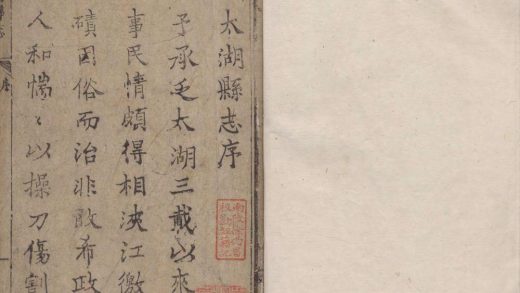 太湖縣志序
予承乏太湖三載以來
事民情頗得相浹江徼
磧因俗而治非敢希政
人和惴〻以操刀傷割
序